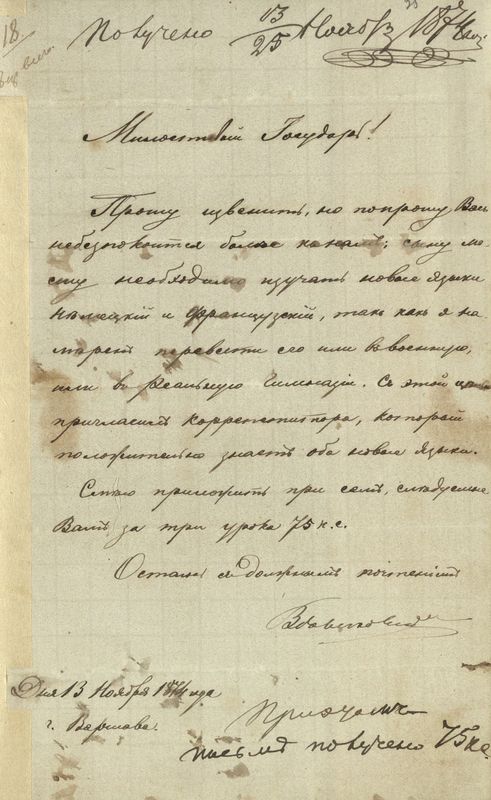 18
Получено 13/25 Ноября 1874 год.
Милостивый Государь!
Прошу извенить, но попрошу Васъ
небезпокоится более къ намъ; сыну мо-
ему необходимо изучать новые языки
немецкій и французскій, такъ какъ я на-
меренъ перевести его или в военную,
или в Реальную Гимназіи. Съ этой целью
пригласилъ корректитора, который
положительно знаетъ оба новые языки.
Смею приложить при семъ, следуемые
Вамъ за три урока 75 к. с.
Остаюсь с должнымъ почтеніемъ
Дня 13 Ноября 1874 года
г. Варшава.
При семъ
письмѣ получено 75 к с.